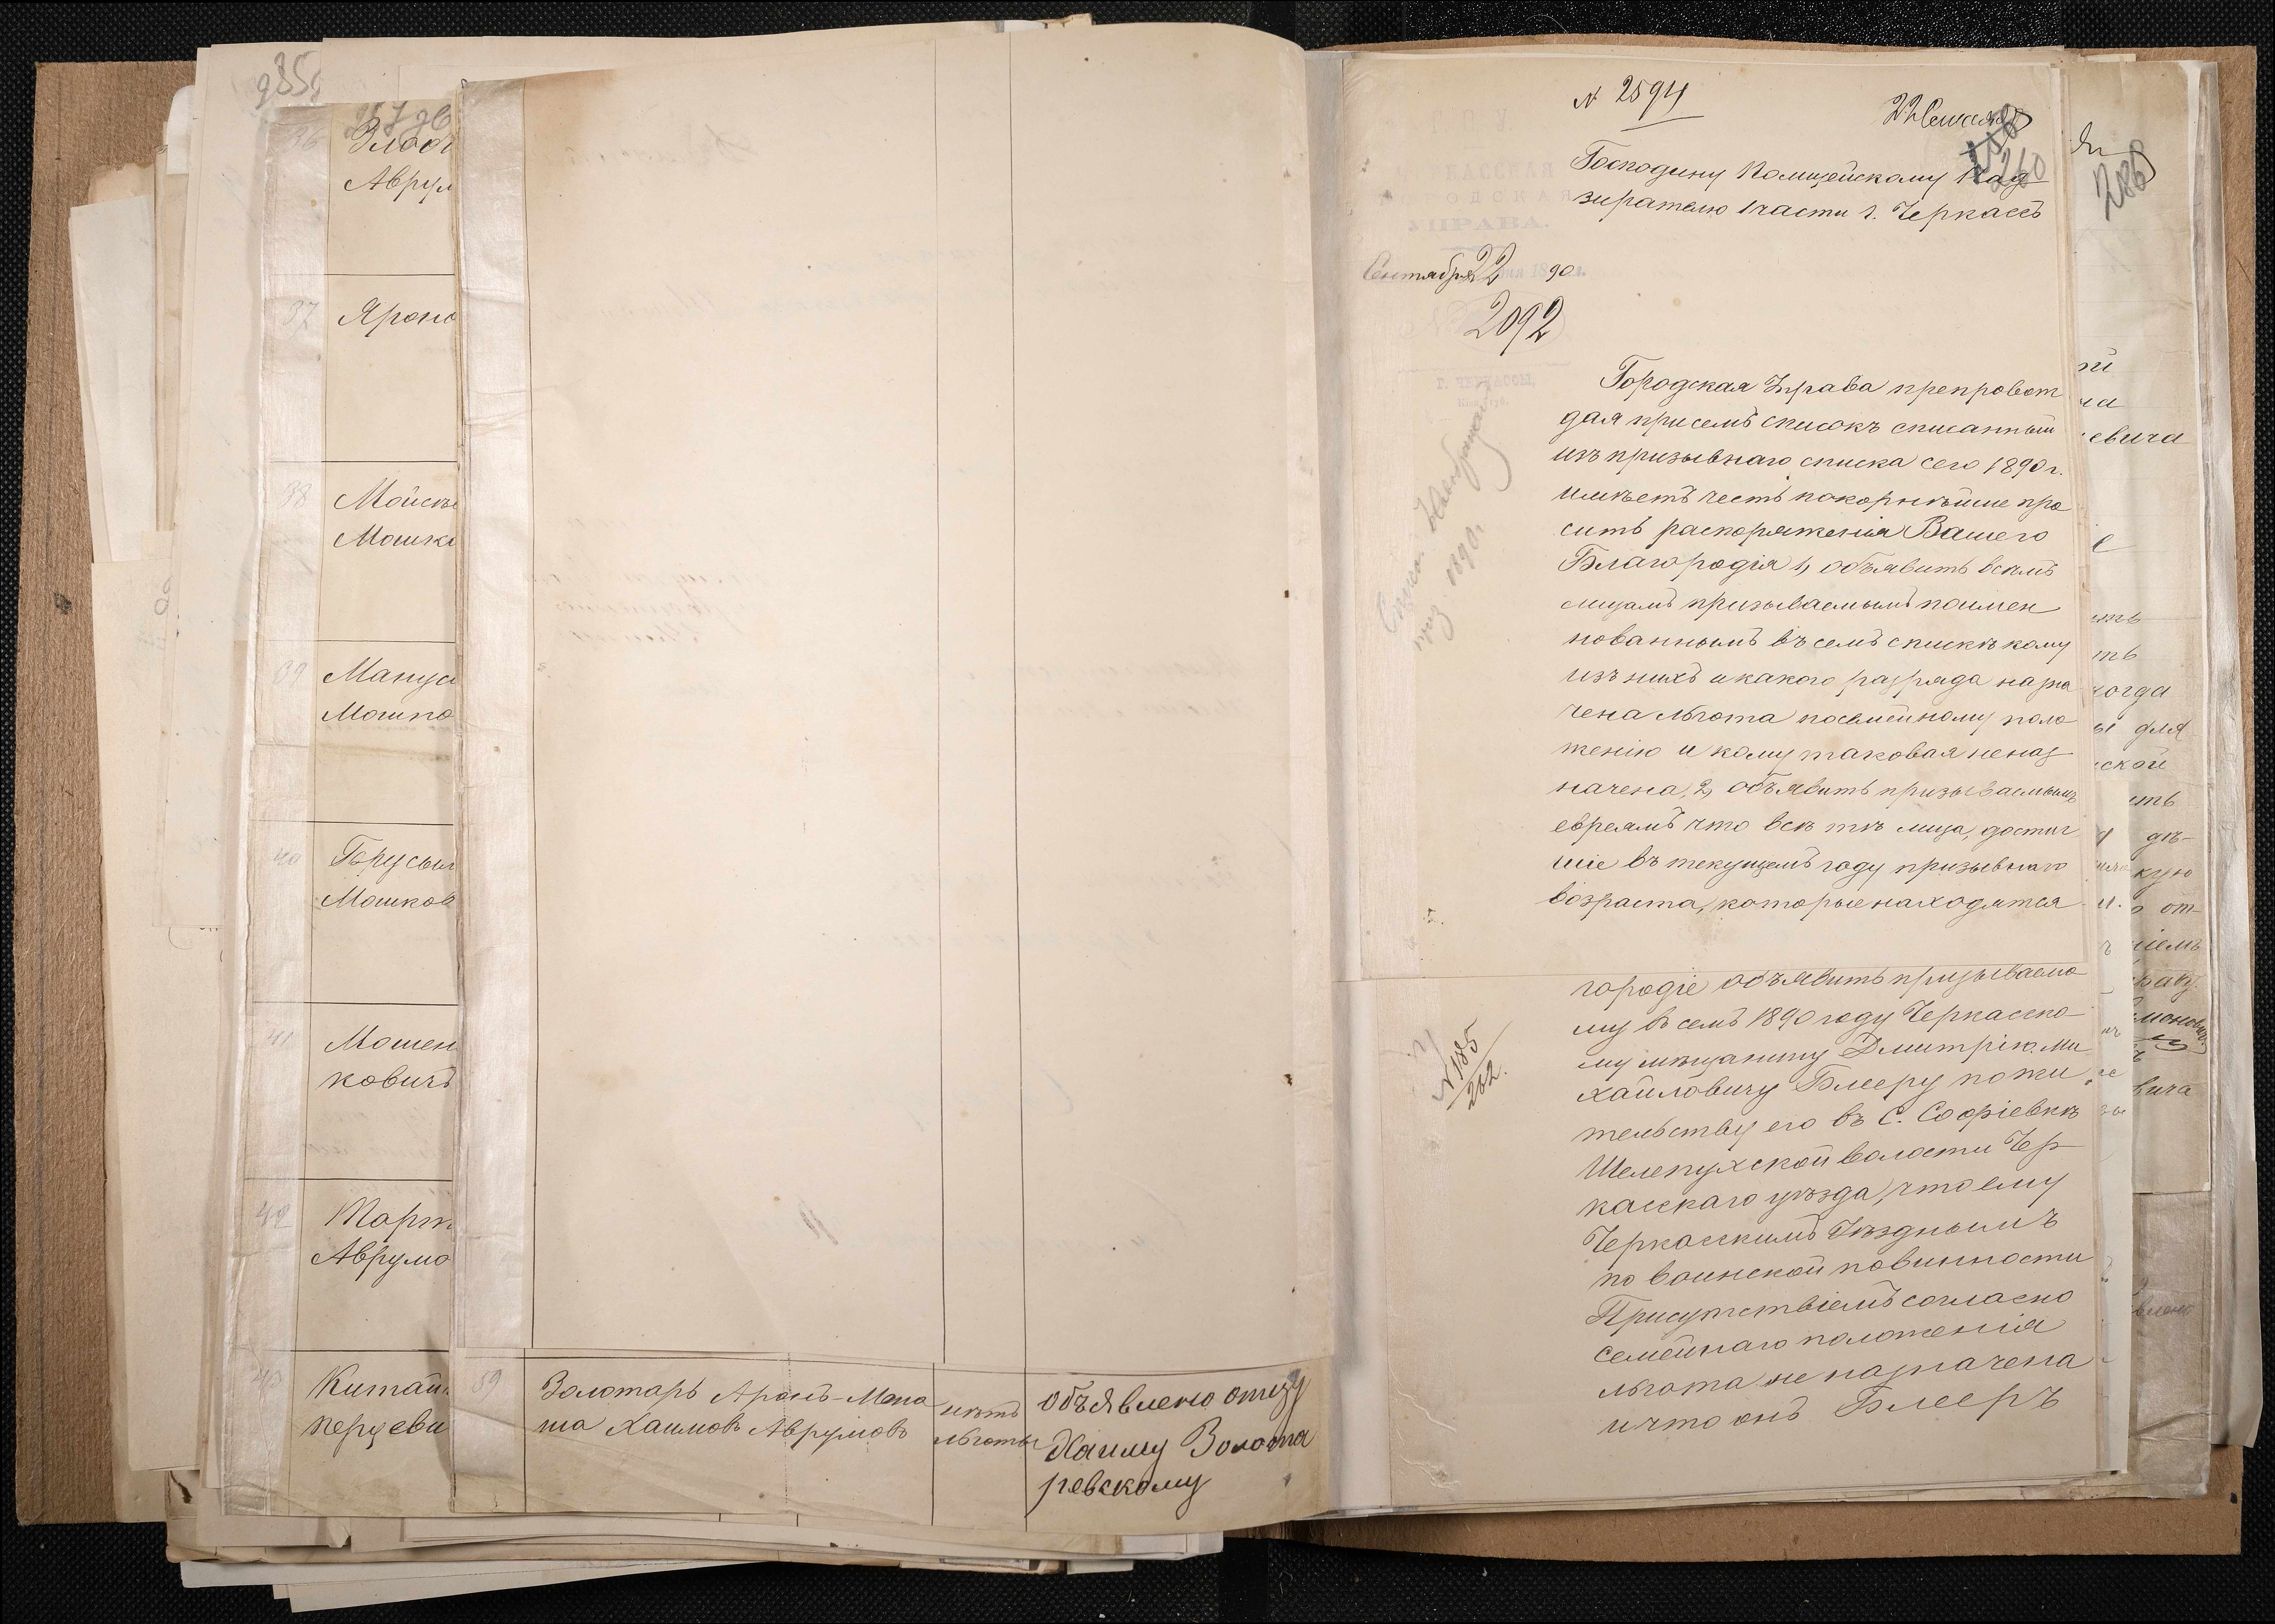 285
36 Злоб
Аврул
37 Яроно
38
Мошк
39 Манус
Мошко
40
Мошков
41 Мошен
ковичъ
42 Март
Аврумо
43 Китай
перцеви
59 Золотарь Аронъ-Мена
ша Хаимовъ Аврумовъ
нѣтъ
льготы
Объявлено отцу
Хаиму Золота
ревскому
№ 2594
22 Сентября
260
Господину Полицейскому Над
зирателю 1 части г. Черкассъ
УПРАВА.
Сентября 22 дня 1890 г.
№ 2092
Г. ЧЕРКАССЫ,
Городская Управа препровож
дая при семъ списокъ списанный
изъ призывнаго списка сего 1890 г.
имѣетъ честь покорнѣйше про
сить распоряженія Вашего
Благородія 1, объявить всѣмъ
лицамъ призываемымъ поимен
нованнымъ въ семъ спискѣ кому
изъ нихъ и какого разряда назна
чена льгота посемейному поло
женію и кому таковая неназ
начена, 2, объявить призываемымъ
евреямъ что всѣ тѣ лица, достиг
шіе въ текущемъ году призывнаго
возраста, которые находятся
1890 г.
городіе объявить призываемо
му въ семъ 1890 году Черкасско
му мѣщанину Дмитрію Ми
хайловичу Блееру по жи
тельству его въ С. Софіевкѣ
Шелепухской волости Чер
касскаго уѣзда, что ему
Черкасскимъ Уѣзднымъ
по воинской повинности
Присутствіемъ согласно
семейнаго положенія
льгота не назначена
и что онъ Блееръ
№ 185
202.
286
евича
когда
для
ской
дѣ-
кую
от-
ніемъ
вича